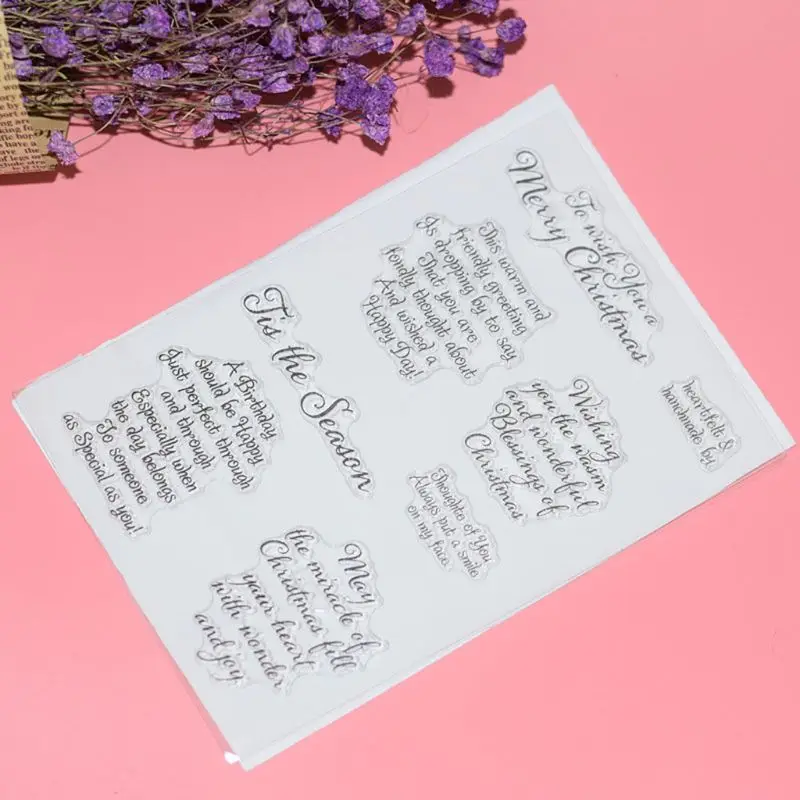 To wish You a
Merry Christmas
This warm and
friendly greeting
Is dropping by to say
That you are
fondly thought about
And wished a
Happy Day!
Tis the Season
A Birthday
should be Happy
Just perfect through
and through
Especially when
the day belongs
To someone
as Special as you!
heartfelt &
handmade by
Wishing
you the warm
and wonderful
Blessings of
Christmas
Thoughts of You
Always put a smile
on my face
May
the miracle of
Christmas fill
your heart
with wonder
and joy